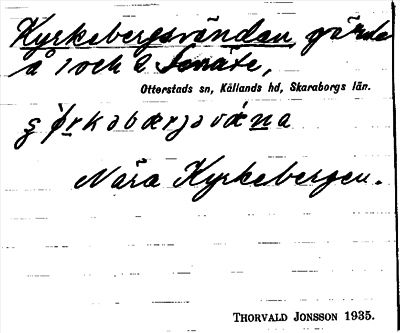 Kyrkebergsvändan, gärde
å 1 och 2 Senäte,
Otterstads sn, Kållands hd, Skaraborgs län.
Nära Kyrkebergen.
THORVALD JONSSON 1935.